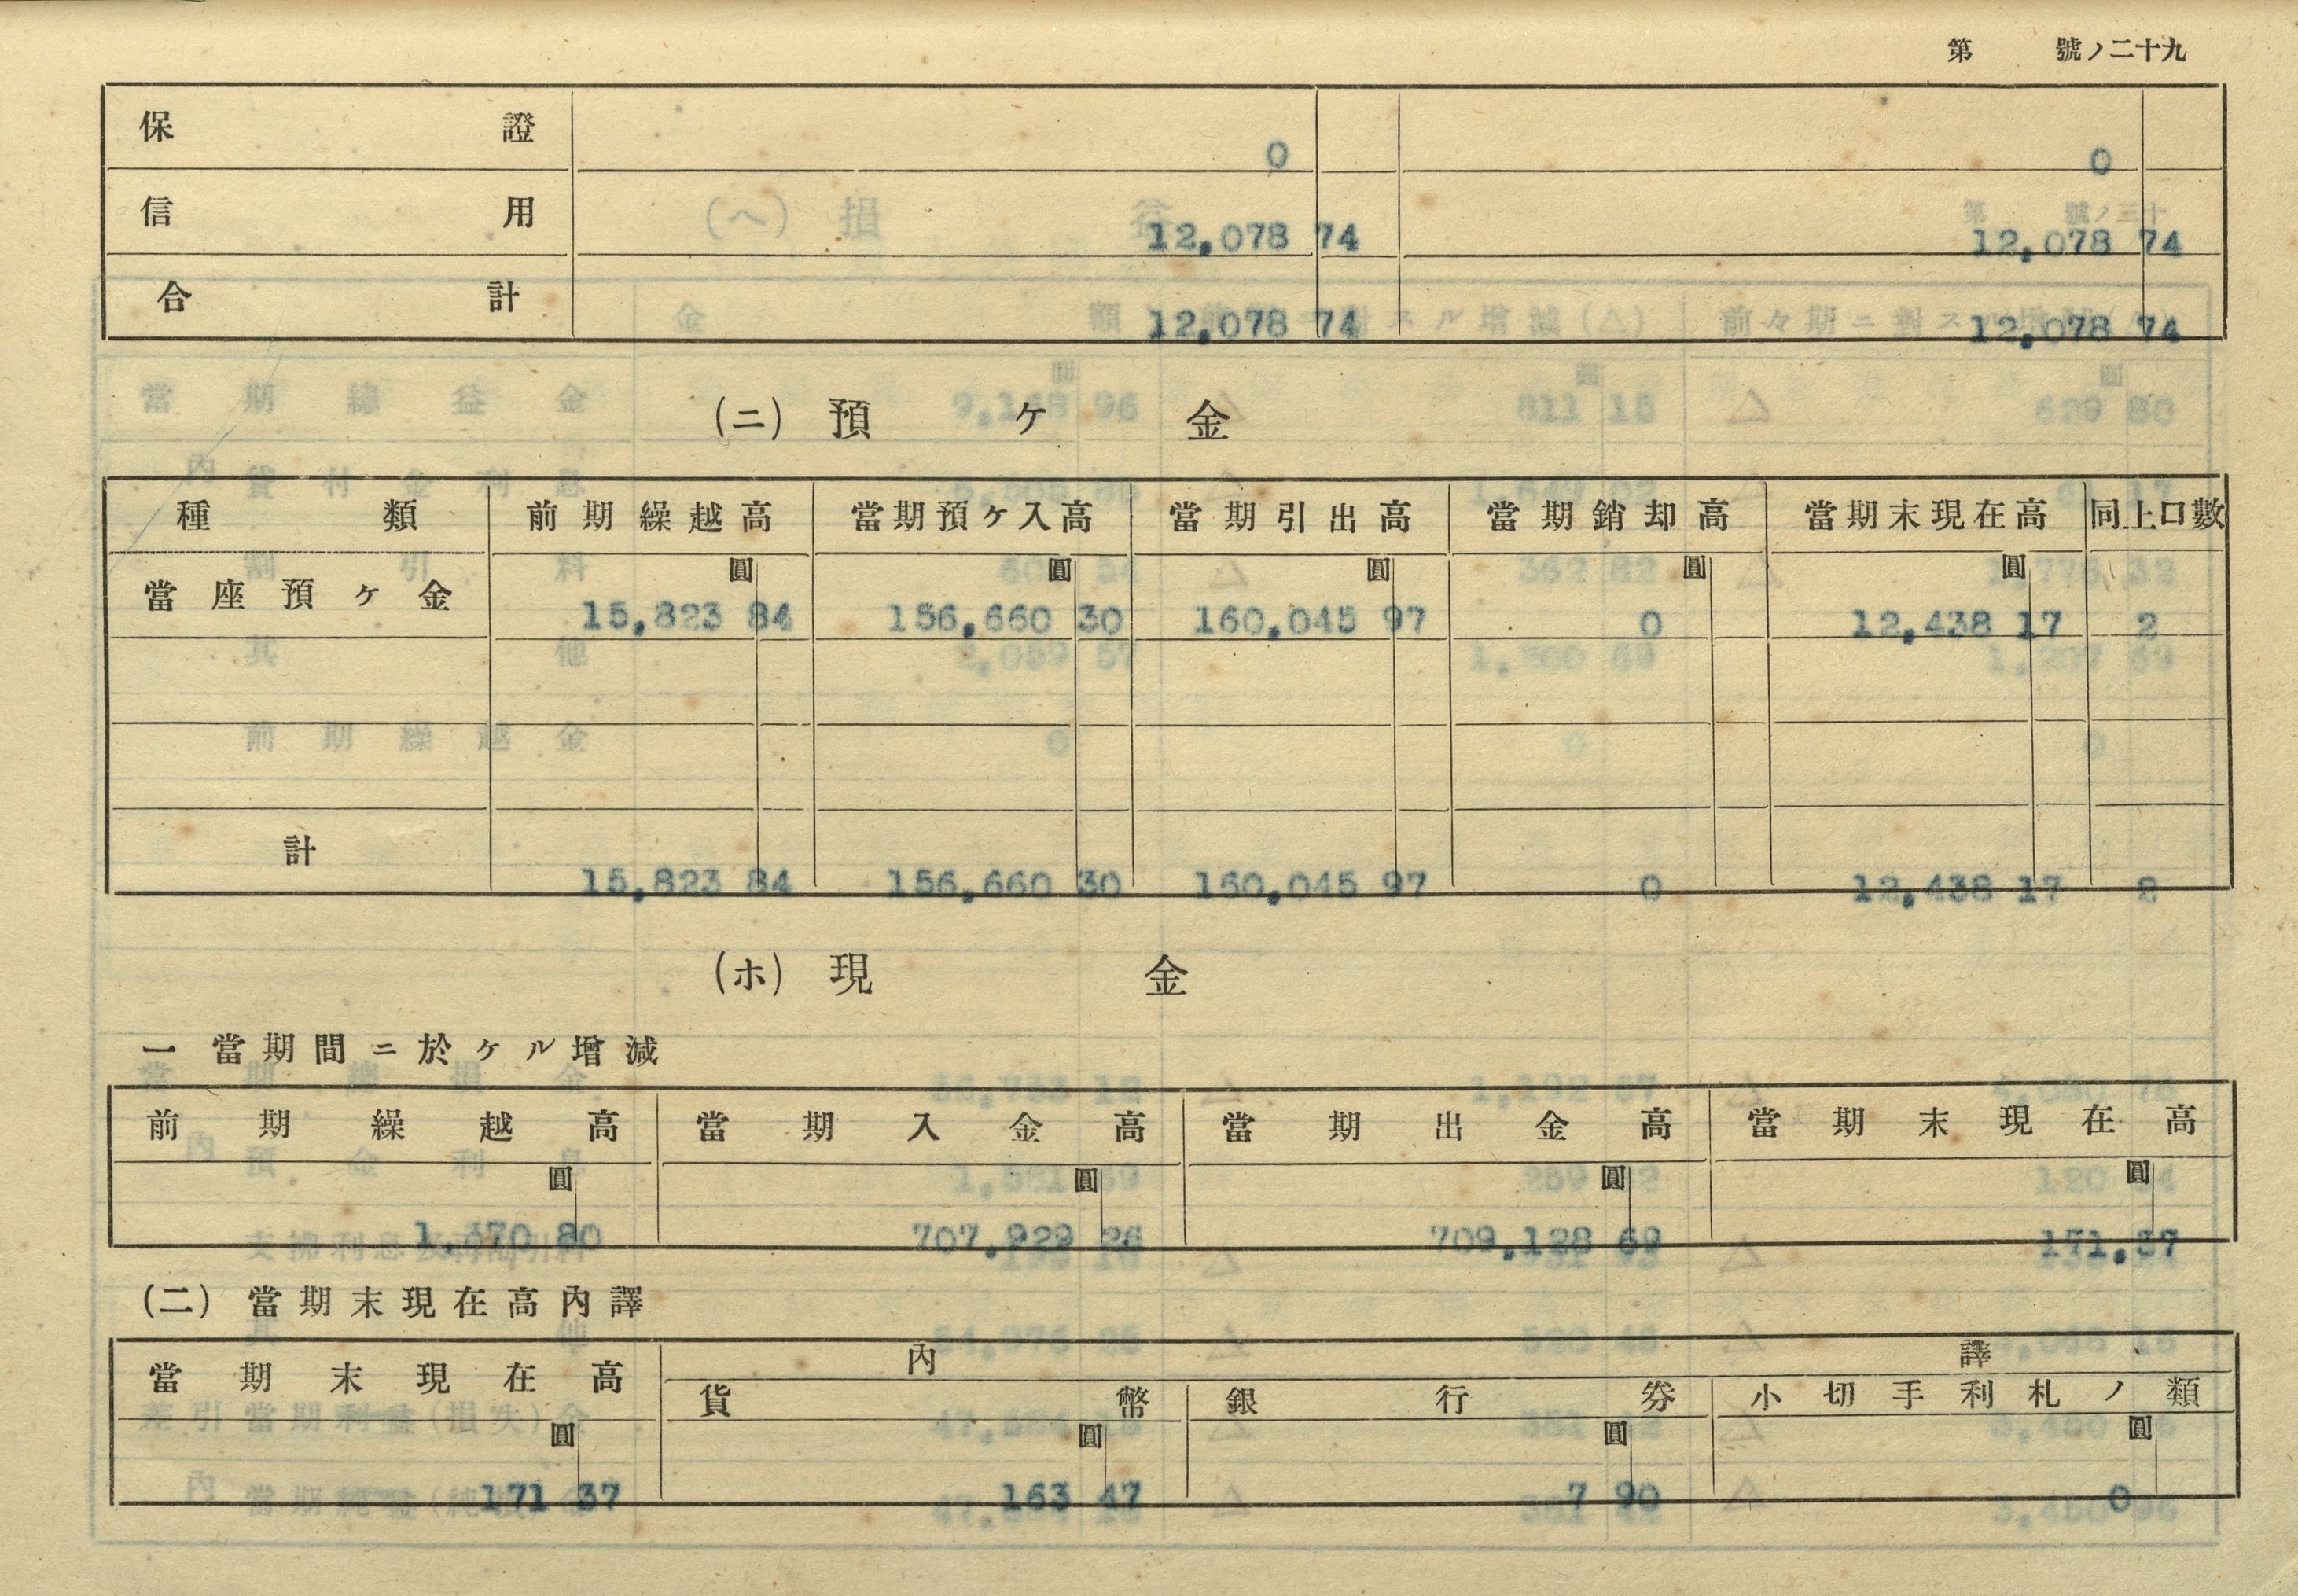 第 號ノ二十九
保證 0 0
信用 12,078 74 12,078 74
合計 12,078 74 12,078 74
(ニ) 預ケ金
種類 前期繰越高 當期預ケ入高 當期引出高 當期銷却高 當期末現在高 同上口數
圓 圓 圓 圓 圓
當座預ケ金 15,823 84 156,660 30 160,045 97 0 12,438 17 2
計 15,823 84 156,660 30 160,045 97 0 12,438 17 2
(ホ) 現金
一 當期間ニ於ケル增減
前期繰越高 當期入金高 當期出金高 當期末現在高
圓 圓 圓 圓
1,370 80 707,929 26 709,128 69 171.37
(二) 當期末現在高內譯
當期末現在高 內譯
貨幣 銀行券 小切手利札ノ類
圓 圓 圓 圓
171 37 163 47 7 90 0